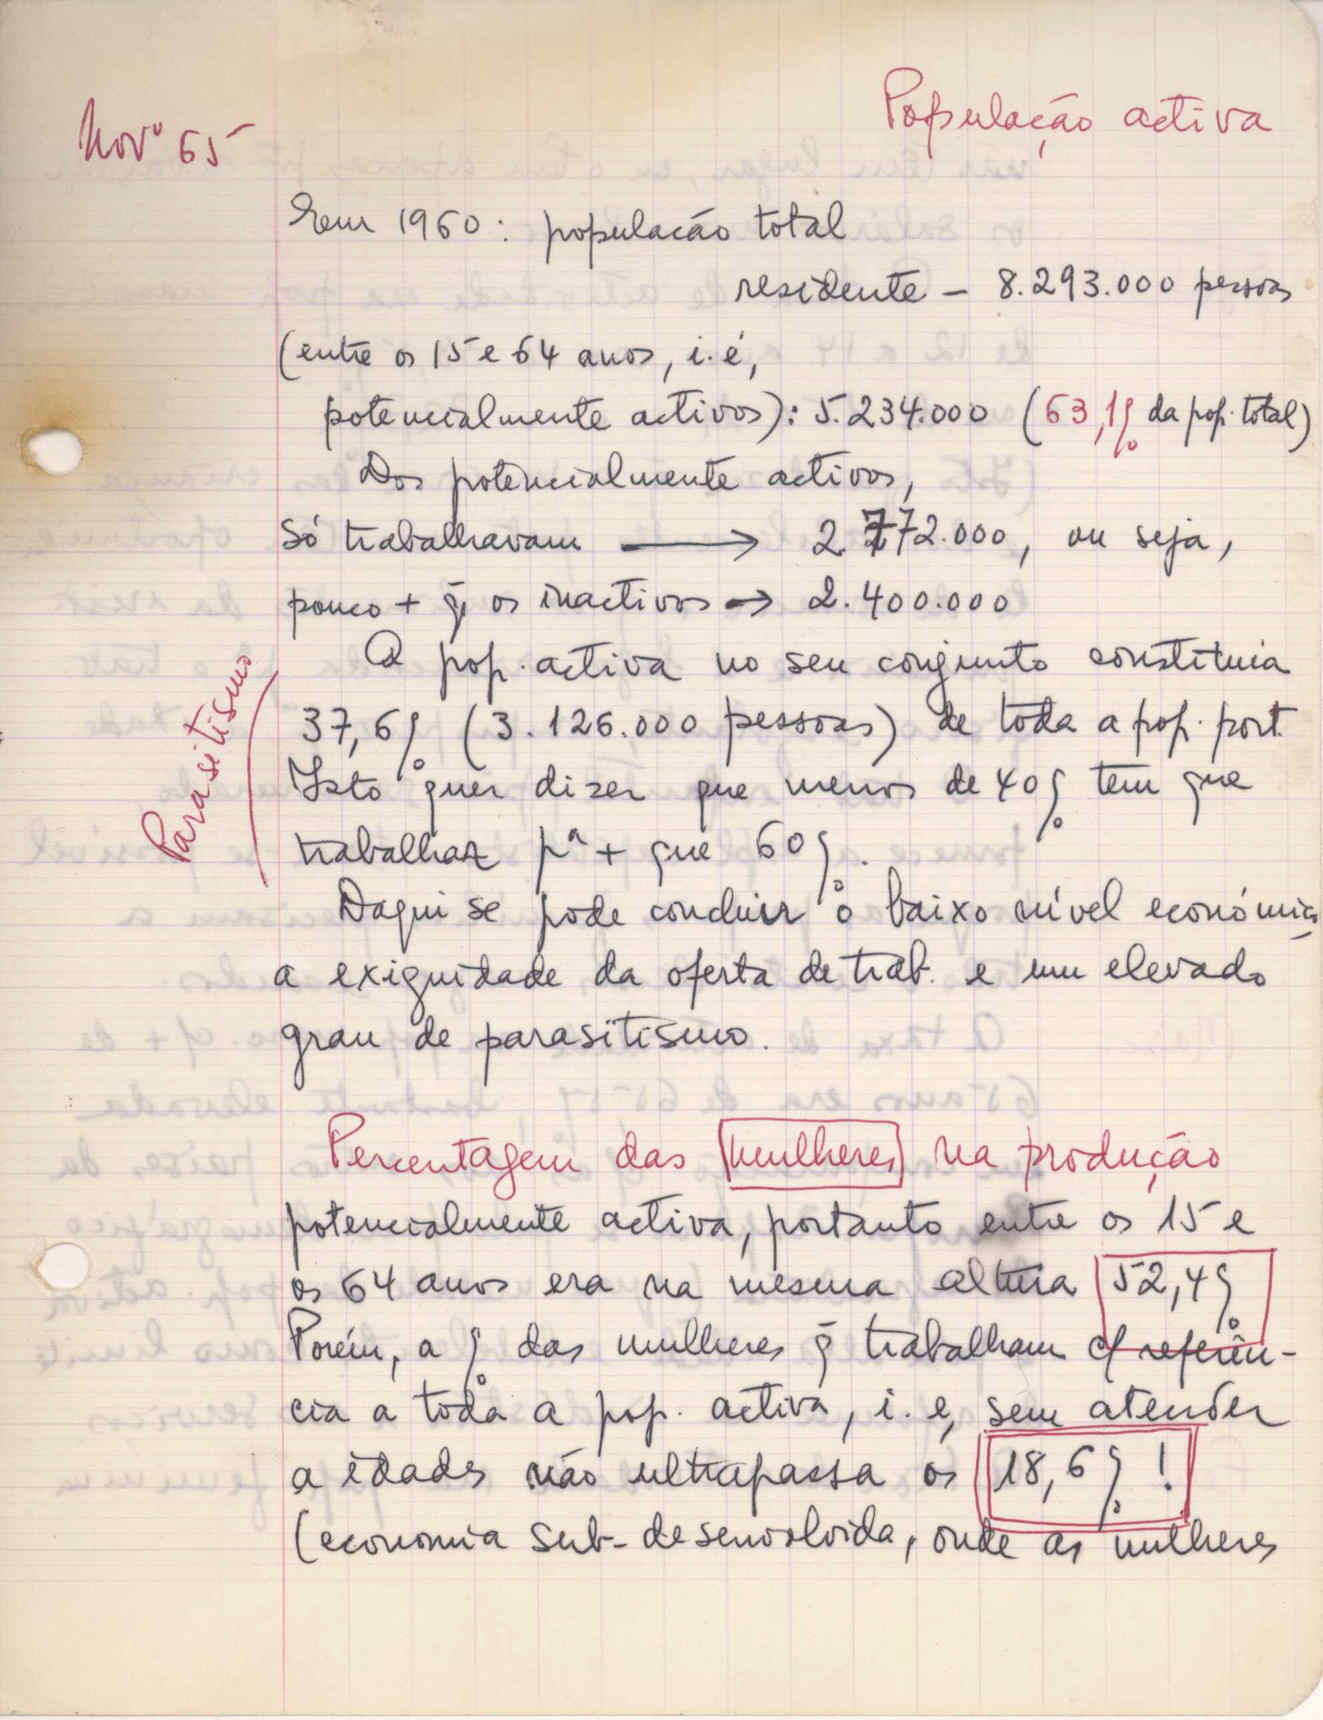 Novº 65
População activa
Em 1960: população total
residente – 8.293.000 pessoas
(entre os 15 e 64 anos, i.é,
potencialmente activos): 5.234.000 (63,1% da pop. total)
Dos potencialmente activos,
só trabalhavam → 2.772.000, ou seja,
pouco + q̃ os inactivos → 2.400.000
A pop. activa no seu conjunto constituia
37,6% (3.126.000 pessoas) de toda a pop. port.
Isto quer dizer que menos de 40% tem que
trabalhar pª + que 60%.
Parasitismo
Daqui se pode concluir o baixo nível económico,
a exiguidade da oferta de trab. e um elevado
grau de parasitismo.
Percentagem das mulheres na produção
potencialmente activa, portanto entre os 15 e
os 64 anos era na mesma altura 52,4%
Porém, a % das mulheres q̃ trabalham c/ referên-
cia a toda a pop. activa, i.e, sem atender
a idades não ultrapassa os 18,6%!
(economia sub-desenvolvida, onde as mulheres